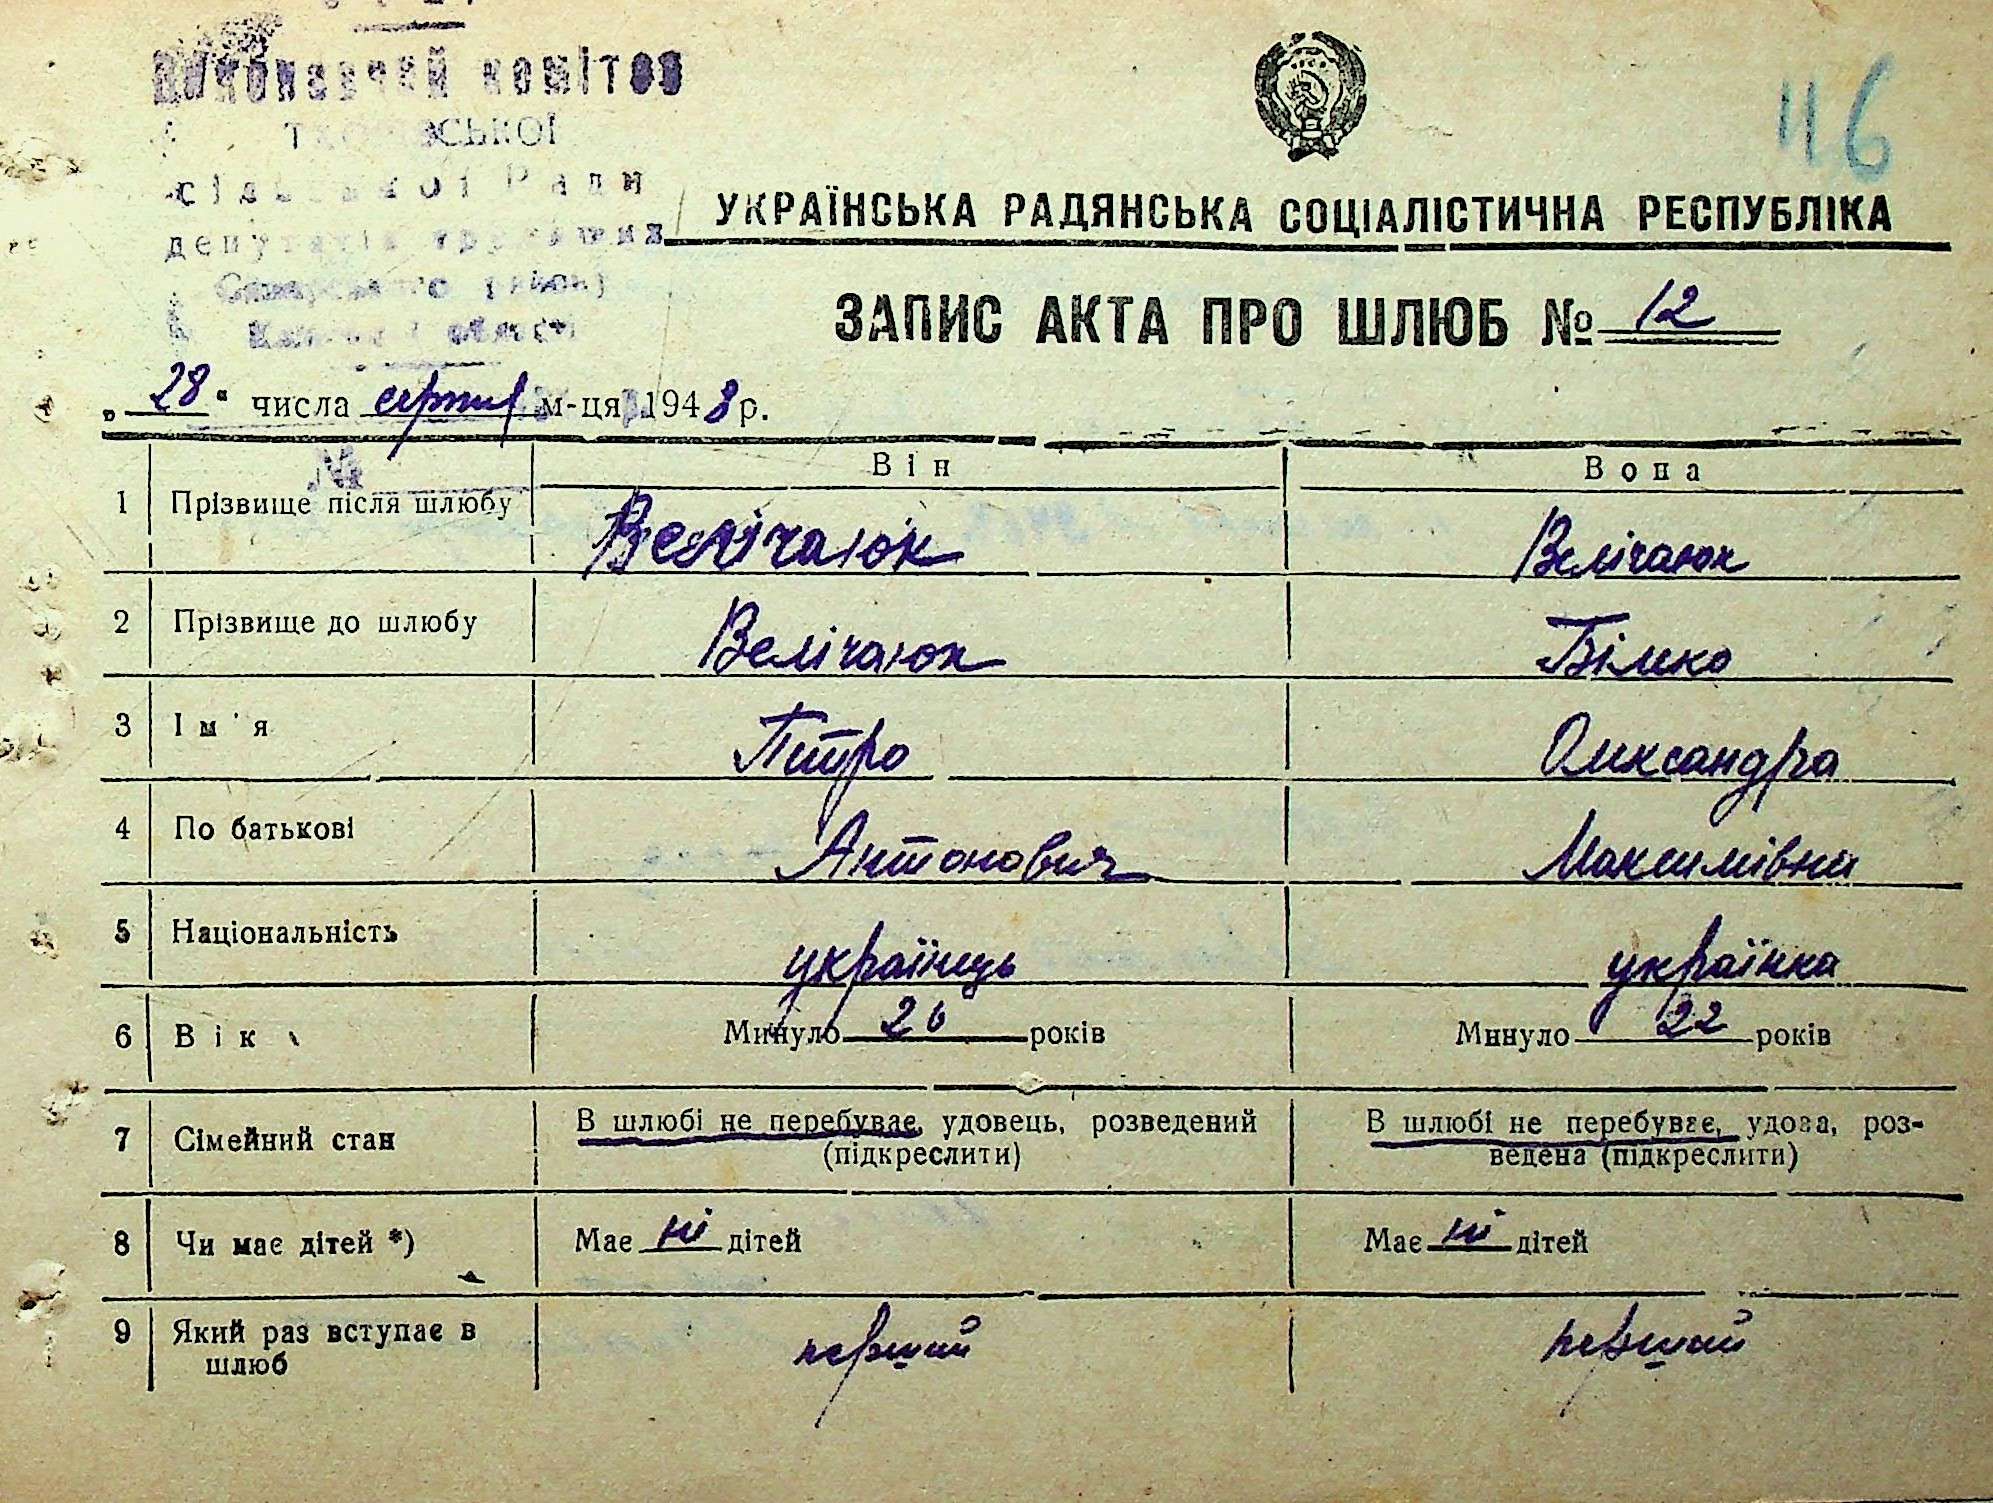 Виконавчий комітет
сільської Ради
депутатів трудящих
області
46
УКРАЇНСЬКА РАДЯНСЬКА СОЦІАЛІСТИЧНА РЕСПУБЛІКА
ЗАПИС АКТА ПРО ШЛЮБ № 12
„ 28 “ числа серпня м-ця 1948 р.
Він Вона
1 Прізвище після шлюбу Велічаюк Велічаюк
2 Прізвище до шлюбу Велічаюк Бімко
3 Ім'я Питро Олександра
4 По батькові Антонович Максимівна
5 Національність українець українка
6 Вік Минуло 26 років Минуло 22 років
7 Сімейний стан В шлюбі не перебуває, удовець, розведений В шлюбі не перебуває, удова, роз-
(підкреслити) ведена (підкреслити)
8 Чи має дітей *) Має ні дітей Має ні дітей
9 Який раз вступає в первший первший
шлюб